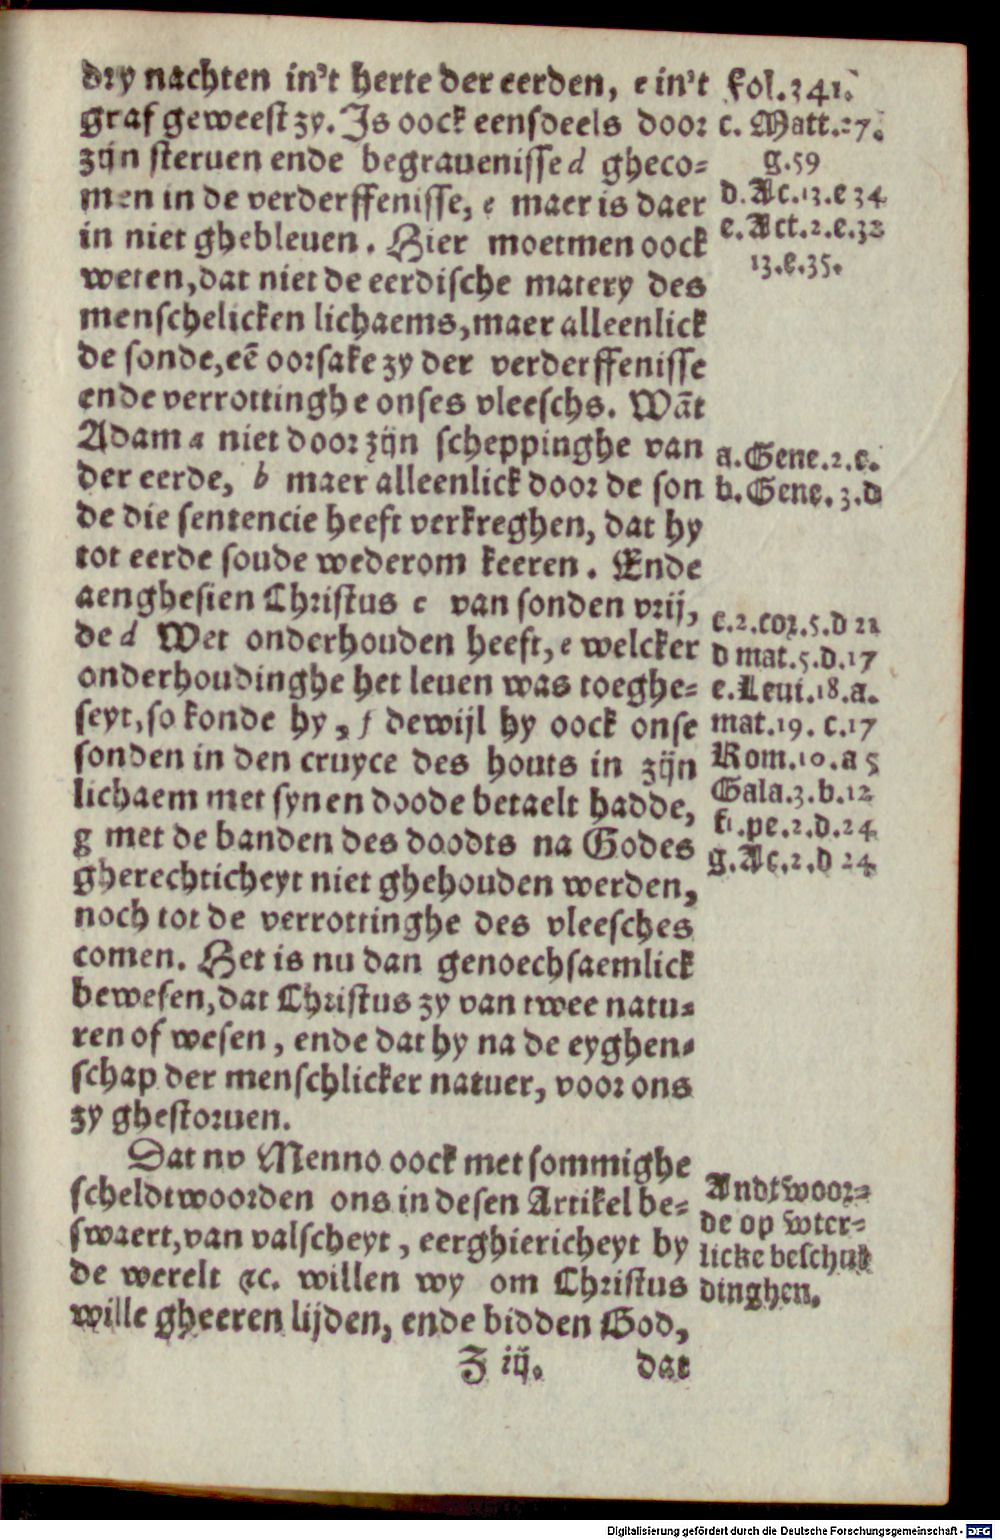 dry nachten in't herte der eerden, c in't
graf geweest zy. Is oock eensdeels door
zijn steruen ende begrauenisse d gheco-
men in de verderffenisse, e maer is daer
in niet ghebleuen. Hier moetmen oock
weten, dat niet de eerdische matery des
menschelicken lichaems, maer alleenlick
de sonde, eē oorsake zy der verderffenisse
ende verrottinghe onses vleeschs. Wāt
Adam a niet door zijn scheppinghe van
der eerde, b maer alleenlick door de son
de die sentencie heeft verkreghen, dat hy
tot eerde soude wederom keeren. Ende
aenghesien Christus c van sonden vrij,
de d Wet onderhouden heeft, e welcker
onderhoudinghe het leuen was toeghe-
seyt, so konde hy, f dewijl hy oock onse
sonden in den cruyce des houts in zijn
lichaem met synen doode betaelt hadde,
g met de banden des doodts na Godes
gherechticheyt niet ghehouden werden,
noch tot de verrottinghe des vleesches
comen. Het is nu dan genoechsaemlick
bewesen, dat Christus zy van twee natu-
ren of wesen, ende dat hy na de eyghen-
schap der menschlicker natuer, voor ons
zy ghestoruen.
Dat nv Menno oock met sommighe
scheldtwoorden ons in desen Artikel be-
swaert, van valscheyt, eerghiericheyt by
de werelt &c. willen wy om Christus
wille gheeren lijden, ende bidden God,
Z iij. dat
Fol. 341.
c. Matt. 27.
g. 59
d. Ac. 13. e 34
e. Act. 2. e. 32
13. e. 35.
a. Gene. 2. c.
b. Gene. 3. d
c. 2. cor. 5. d 21
d mat. 5. d. 17
e. Leui. 18. a.
mat. 19. c. 17
Rom. 10. a 5
Gala. 3. b. 12
f. 1. pe. 2. d. 24
g. Ac. 2. d 24
Andtwoor-
de op wter-
licke beschul
dinghen.
Digitalisierung gefördert durch die Deutsche Forschungsgemeinschaft - DFG